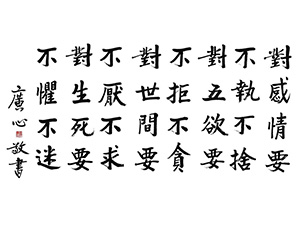 對感情要
不執不捨
對五欲要
不拒不貪
對世間要
不厭不求
對生死要
不懼不迷
廣心敬書